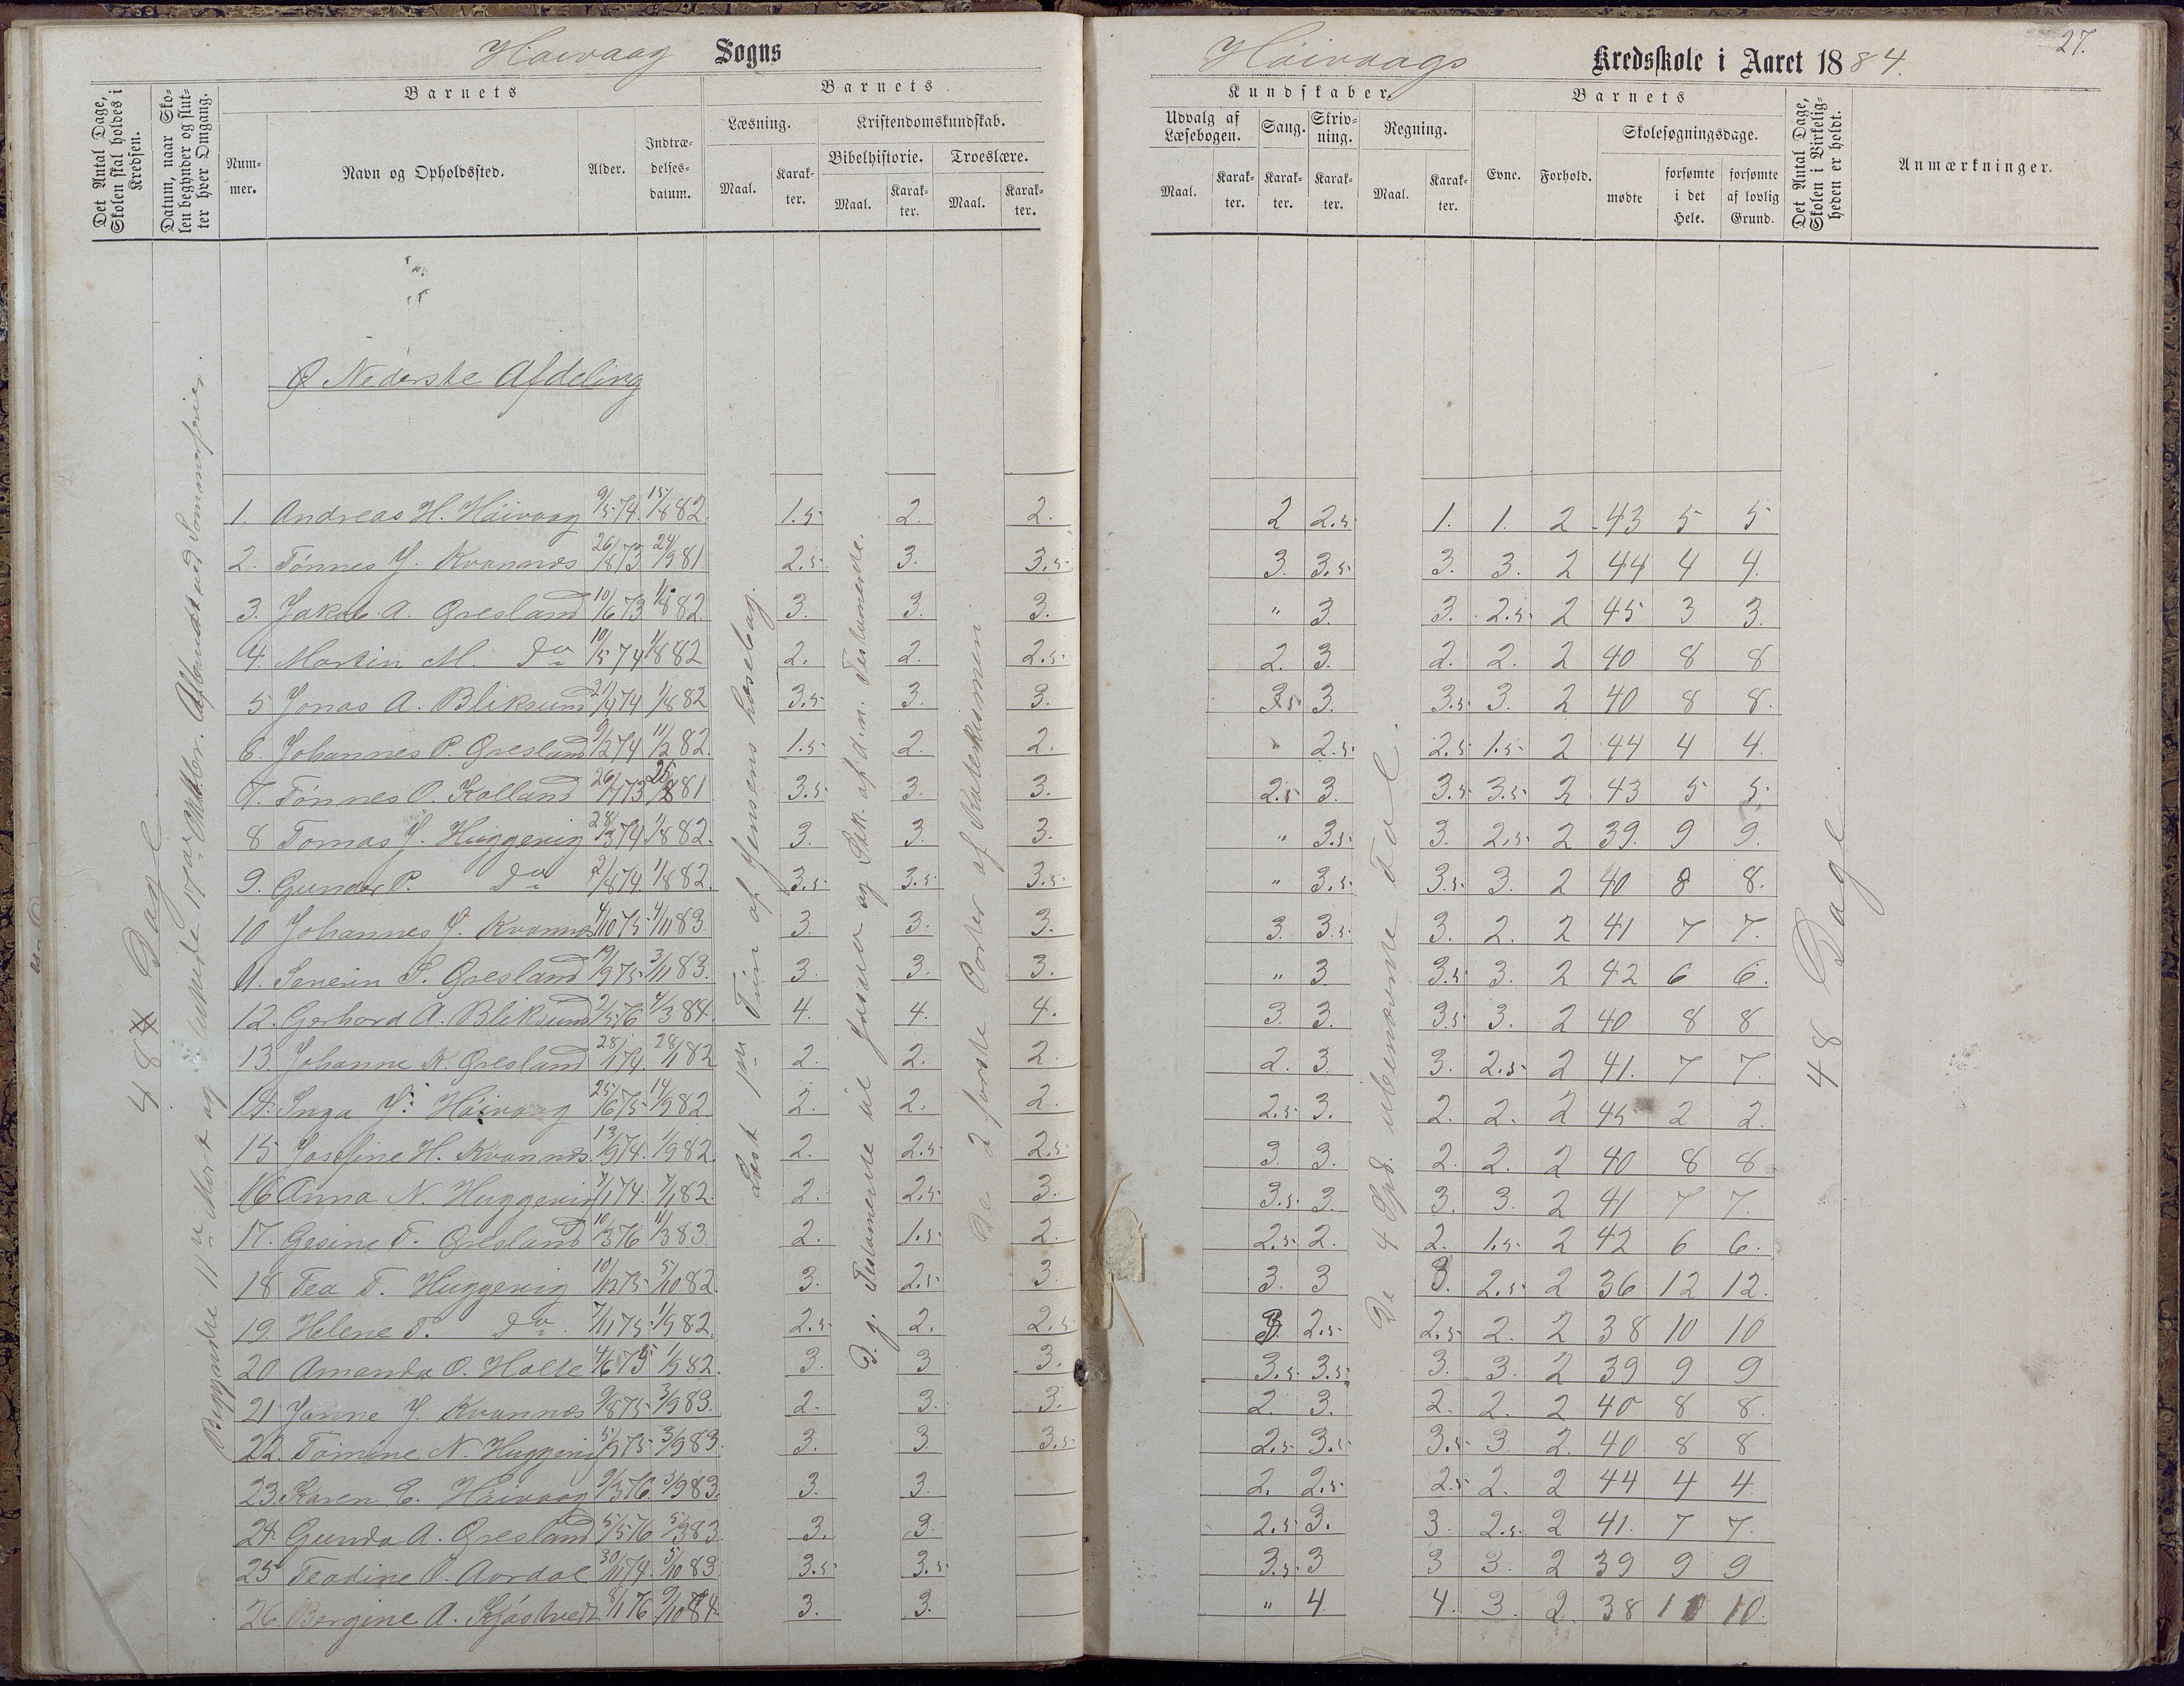 Høivaag Sogns
Høivaags Kredsskole i Aaret 1884.
27.
Det Antal Dage, Skolen skal holdes i Kredsen.
Datum, naar Skolen begynder og slutter hver Omgang.
Barnets
Nummer.
Navn og Opholdssted.
Alder.
Indtrædelsesdatum.
Barnets
Læsning.
Maal.
Karakter.
Kristendomskundskab.
Bibelhistorie.
Maal.
Karakter.
Troeslære.
Maal.
Karakter.
Kundskaber.
Udvalg af Læsebogen.
Maal.
Karakter.
Sang.
Karakter.
Skrivning.
Karakter.
Regning.
Maal.
Karakter.
Barnets
Evne.
Forhold.
Skolesøgningsdage.
mødte
forsømte i det Hele.
forsømte af lovlig Grund.
Det Antal Dage, Skolen i Virkeligheden er holdt.
Anmærkninger.
Nederste Afdeling
48 Dage
Læst af Jensens Læsebog.
De 2 første Parter af Katekismen
De 4 Spd. ubenævnte Tal.
48 Dage
1. Andreas H. Høivaag 9/5 74. 15/8 82. 1.5 2. 2. 2 2.5 1. 1. 2 43 5 5
2. Tønnes J. Kvannes 26/8 73 24/9 81. 2.5 3. 3.5 3. 3.5 3. 3. 2 44 4 4.
3. Jakob A. Øresland 10/6 73 1/8 82. 3. 3. 3. " 3. 3. 2.5 2 45 3 3.
4. Martin M. Do 10/5 74 1/8 82 2. 2. 2.5 2. 3. 2. 2. 2 40 8 8
5 Jonas A. Bliksund 21/9 74 1/8 82 3.5 3. 3. 3.5 3. 3.5 3. 2 40 8 8.
6. Johannes P. Øresland 9/2 74 11/2 82. 1.5 2. 2. " 2.5 2.5 1.5 2 44 4 4.
7. Tønnes O. Kalland 26/7 73 25/8 81 3.5 3. 3. 2.5 3. 3.5 3.5 2 43 5 5
8 Tomas J. Huggevig 28/3 74. 1/8 82. 3. 3. 3. " 3.5 3. 2.5 2 39. 9 9.
9. Gunder P. Do 2/8 74. 1/8 82. 3.5 3.5 3.5 " 3.5 3.5 3. 2 40 8 8.
10 Johannes J. Kvannes 4/10 75 4/11 83 3. 3. 3. 3. 3.5 3. 2. 2 41 7 7.
11. Severin S. Øresland 19/9 75 3/11 83. 3. 3. 3. " 3 3.5 3. 2 42 6 6.
12. Gerhard A. Bliksund 2/5 76 4/3 84. 4. 4. 4. 3. 3. 3.5 3. 2 40 8 8
13. Johanne K. Øresland 28/1 74. 28/1 82 2. 2. 2. 2. 3. 3. 2.5 2 41. 7 7.
14. Inga J. Høivaag 25/6 75 14/9 82 2. 2. 2. 2.5 3. 2. 2. 2 45 2 2.
15 Josefine H. Kvannes 13/9 74. 1/9 82. 2. 2.5 2.5 3. 3. 2. 2. 2 40 8 8
16 Anna N. Huggevig 7/1 74. 7/1 82. 2. 2.5 3. 3.5 3. 3. 3. 2 41 7 7.
17. Gesine T. Øresland 10/3 76 11/3 83. 2. 1.5 2. 2.5 2. 2. 1.5 2 42 6 6.
18 Tea T. Huggevig 10/12 75 5/10 82. 3. 2.5 3. 3. 3 3. 2.5 2 36 12 12.
19. Helene T. Do 7/11 75 1/9 82. 2.5 2. 2.5 3. 2.5 2.5 2. 2 38 10 10
20 Amanda O. Holte 4/6 75 1/9 82. 3. 3 3. 3.5 3.5 3. 3. 2 39 9 9
21 Janne J. Kvannes 9/8 75 3/9 83. 2. 3. 3. 2. 3. 2. 2. 2 40 8 8.
22. Tomine N. Huggevig 5/9 75 3/9 83. 3. 3. 3.5 2.5 3.5 3.5 3 2. 40 8 8
23. Karen E. Høivaag 9/3 76. 3/9 83. 3. 3. 2. 2.5 2.5 2. 2 44 4 4.
24. Gunda A. Øresland 5/5 76 5/3 83 3. 3. 2.5 3. 3. 2.5 2 41. 7 7.
25 Teodine O. Aardal 30/11 74. 5/10 83. 3.5 3.5 3.5 3 3 3. 2 39 9 9
26. Bergine A. Kjøstvedt 8/1 76 9/10 84. 3. 3. " 4 4. 3. 2. 38 10 10.